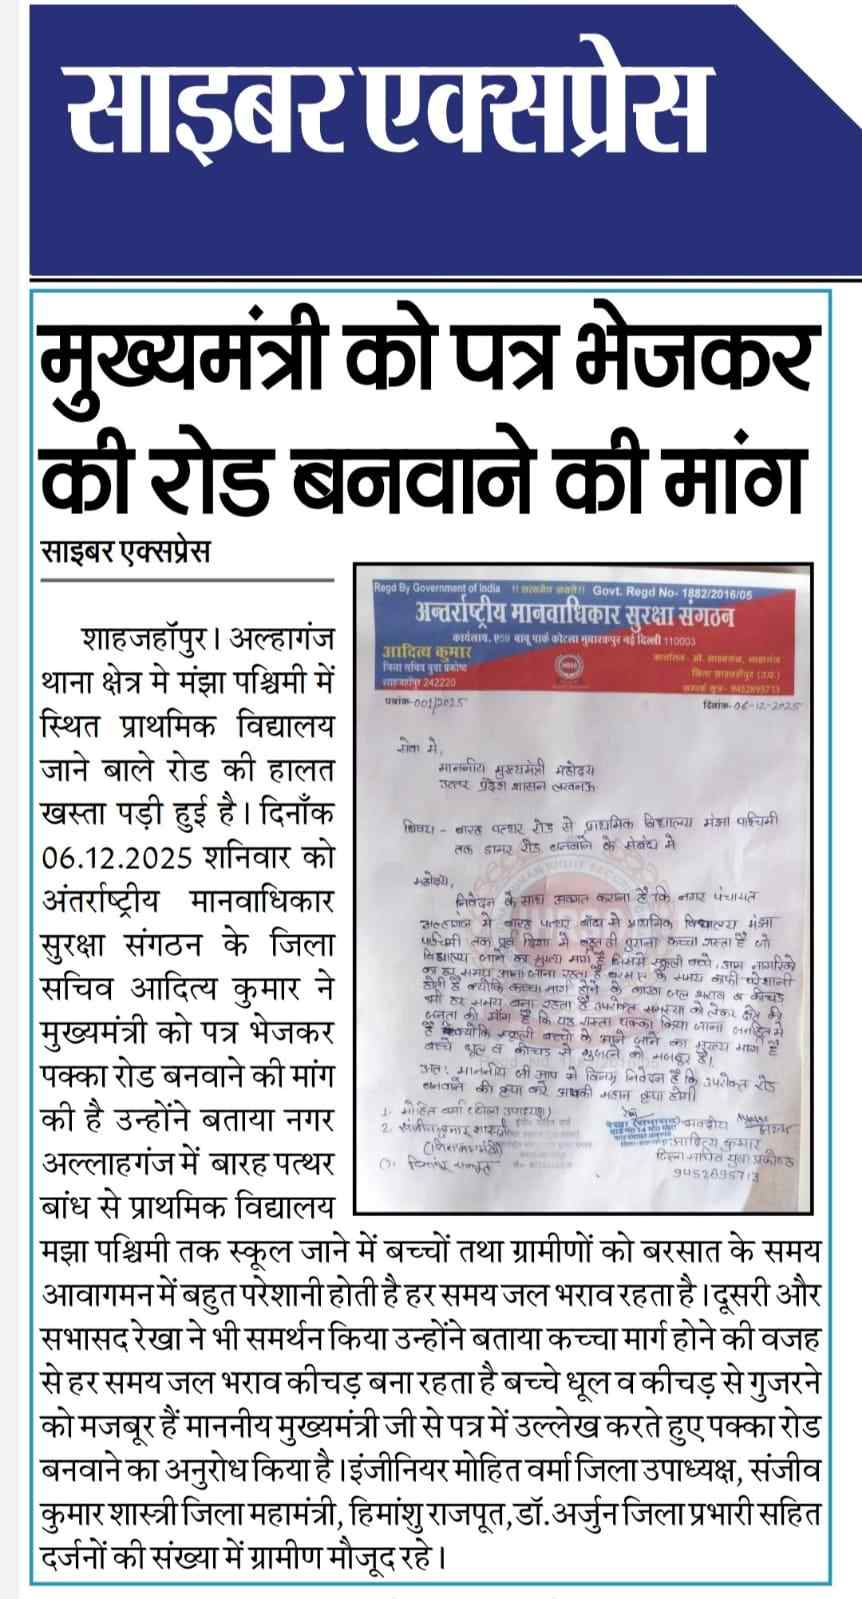 साइबर एक्सप्रेस
मुख्यमंत्री को पत्र भेजकर
की रोड बनवाने की मांग
साइबर एक्सप्रेस
शाहजहॉपुर। अल्हागंज
थाना क्षेत्र मे मंझा पश्चिमी में
स्थित प्राथमिक विद्यालय
जाने बाले रोड की हालत
खस्ता पड़ी हुई है। दिनाँक
06.12.2025 शनिवार को
अंतर्राष्ट्रीय मानवाधिकार
सुरक्षा संगठन के जिला
सचिव आदित्य कुमार ने
मुख्यमंत्री को पत्र भेजकर
पक्का रोड बनवाने की मांग
की है उन्होंने बताया नगर
अल्लाहगंज में बारह पत्थर
बांध से प्राथमिक विद्यालय
मझा पश्चिमी तक स्कूल जाने में बच्चों तथा ग्रामीणों को बरसात के समय
आवागमन में बहुत परेशानी होती है हर समय जल भराव रहता है। दूसरी और
सभासद रेखा ने भी समर्थन किया उन्होंने बताया कच्चा मार्ग होने की वजह
से हर समय जल भराव कीचड़ बना रहता है बच्चे धूल व कीचड़ से गुजरने
को मजबूर हैं माननीय मुख्यमंत्री जी से पत्र में उल्लेख करते हुए पक्का रोड
बनवाने का अनुरोध किया है। इंजीनियर मोहित वर्मा जिला उपाध्यक्ष, संजीव
कुमार शास्त्री जिला महामंत्री, हिमांशु राजपूत, डॉ. अर्जुन जिला प्रभारी सहित
दर्जनों की संख्या में ग्रामीण मौजूद रहे।
Regd By Government of India Govt. Regd No- 1882/2016/05
अन्तर्राष्ट्रीय मानवाधिकार सुरक्षा संगठन
कार्यलाय. ए59 बापू पार्क कोटला मुबारकपुर नई दिल्ली 110003
आदित्य कुमार
जिला सचिव युवा प्रकोष्ठ
शाहजहाँपुर 242220
जिला शाहजहाँपुर (उ.प्र.)
सम्पर्क सूत्र- 9452695713
पत्रांक- 001/2025
दिनांक- 06-12-2025
सेवा मे,
माननीय मुख्यमंत्री महोदय
उत्तर प्रदेश शासन लखनऊ
विषय - बारह पत्थर रोड से प्राथमिक विद्यालय मंझा पश्चिमी
तक डामर रोड बनवाने के संबंध मे
महोदय,
निवेदन के साथ अवगत कराना है कि नगर पंचायत
अल्हागंज मे बारह पत्थर बाँध से प्राथमिक विद्यालय मंझा
पश्चिमी तक पूर्व दिशा मे बहुत ही पुराना कच्चा रास्ता है जो
विद्यालय जाने का मुख्य मार्ग है जिससे स्कूली बच्चे, आम नागरिको
का हर समय आना जाना रहता है बरसात के समय काफी परेशानी
होती है क्योंकि कच्चा मार्ग होने के कारण जल भराव व कीचड
भी हर समय बना रहता है उपरोक्त समस्या को लेकर क्षेत्र की
जनता की मांग है कि यह रास्ता पक्का किया जाना जनहित मे
है क्योंकि स्कूली बच्चो के आने जाने का मुख्य मार्ग है
बच्चे धूल व कीचड से गुजरने को मजबूर है।
अतः माननीय जी आप से विनम्र निवेदन है कि उपरोक्त रोड
बनवाने की कृपा करे आपकी महान कृपा होगी
1. मोहित वर्मा (जिला उपाध्यक्ष)
2. संजीव कुमार शास्त्री
(जिला महामंत्री)
आदित्य कुमार
जिला सचिव युवा प्रकोष्ठ
9452695713